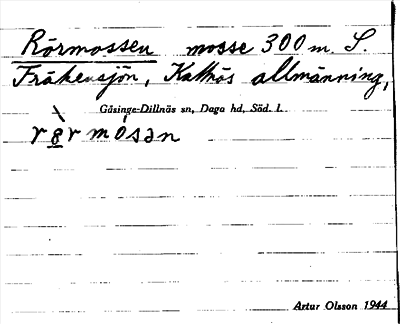 Rörmossen mosse 300 m. S.
Fräkensjön, Kattnäs allmänning,
Gåsinge-Dillnäs sn, Daga hd, Söd. L.
Artur Olsson 1944